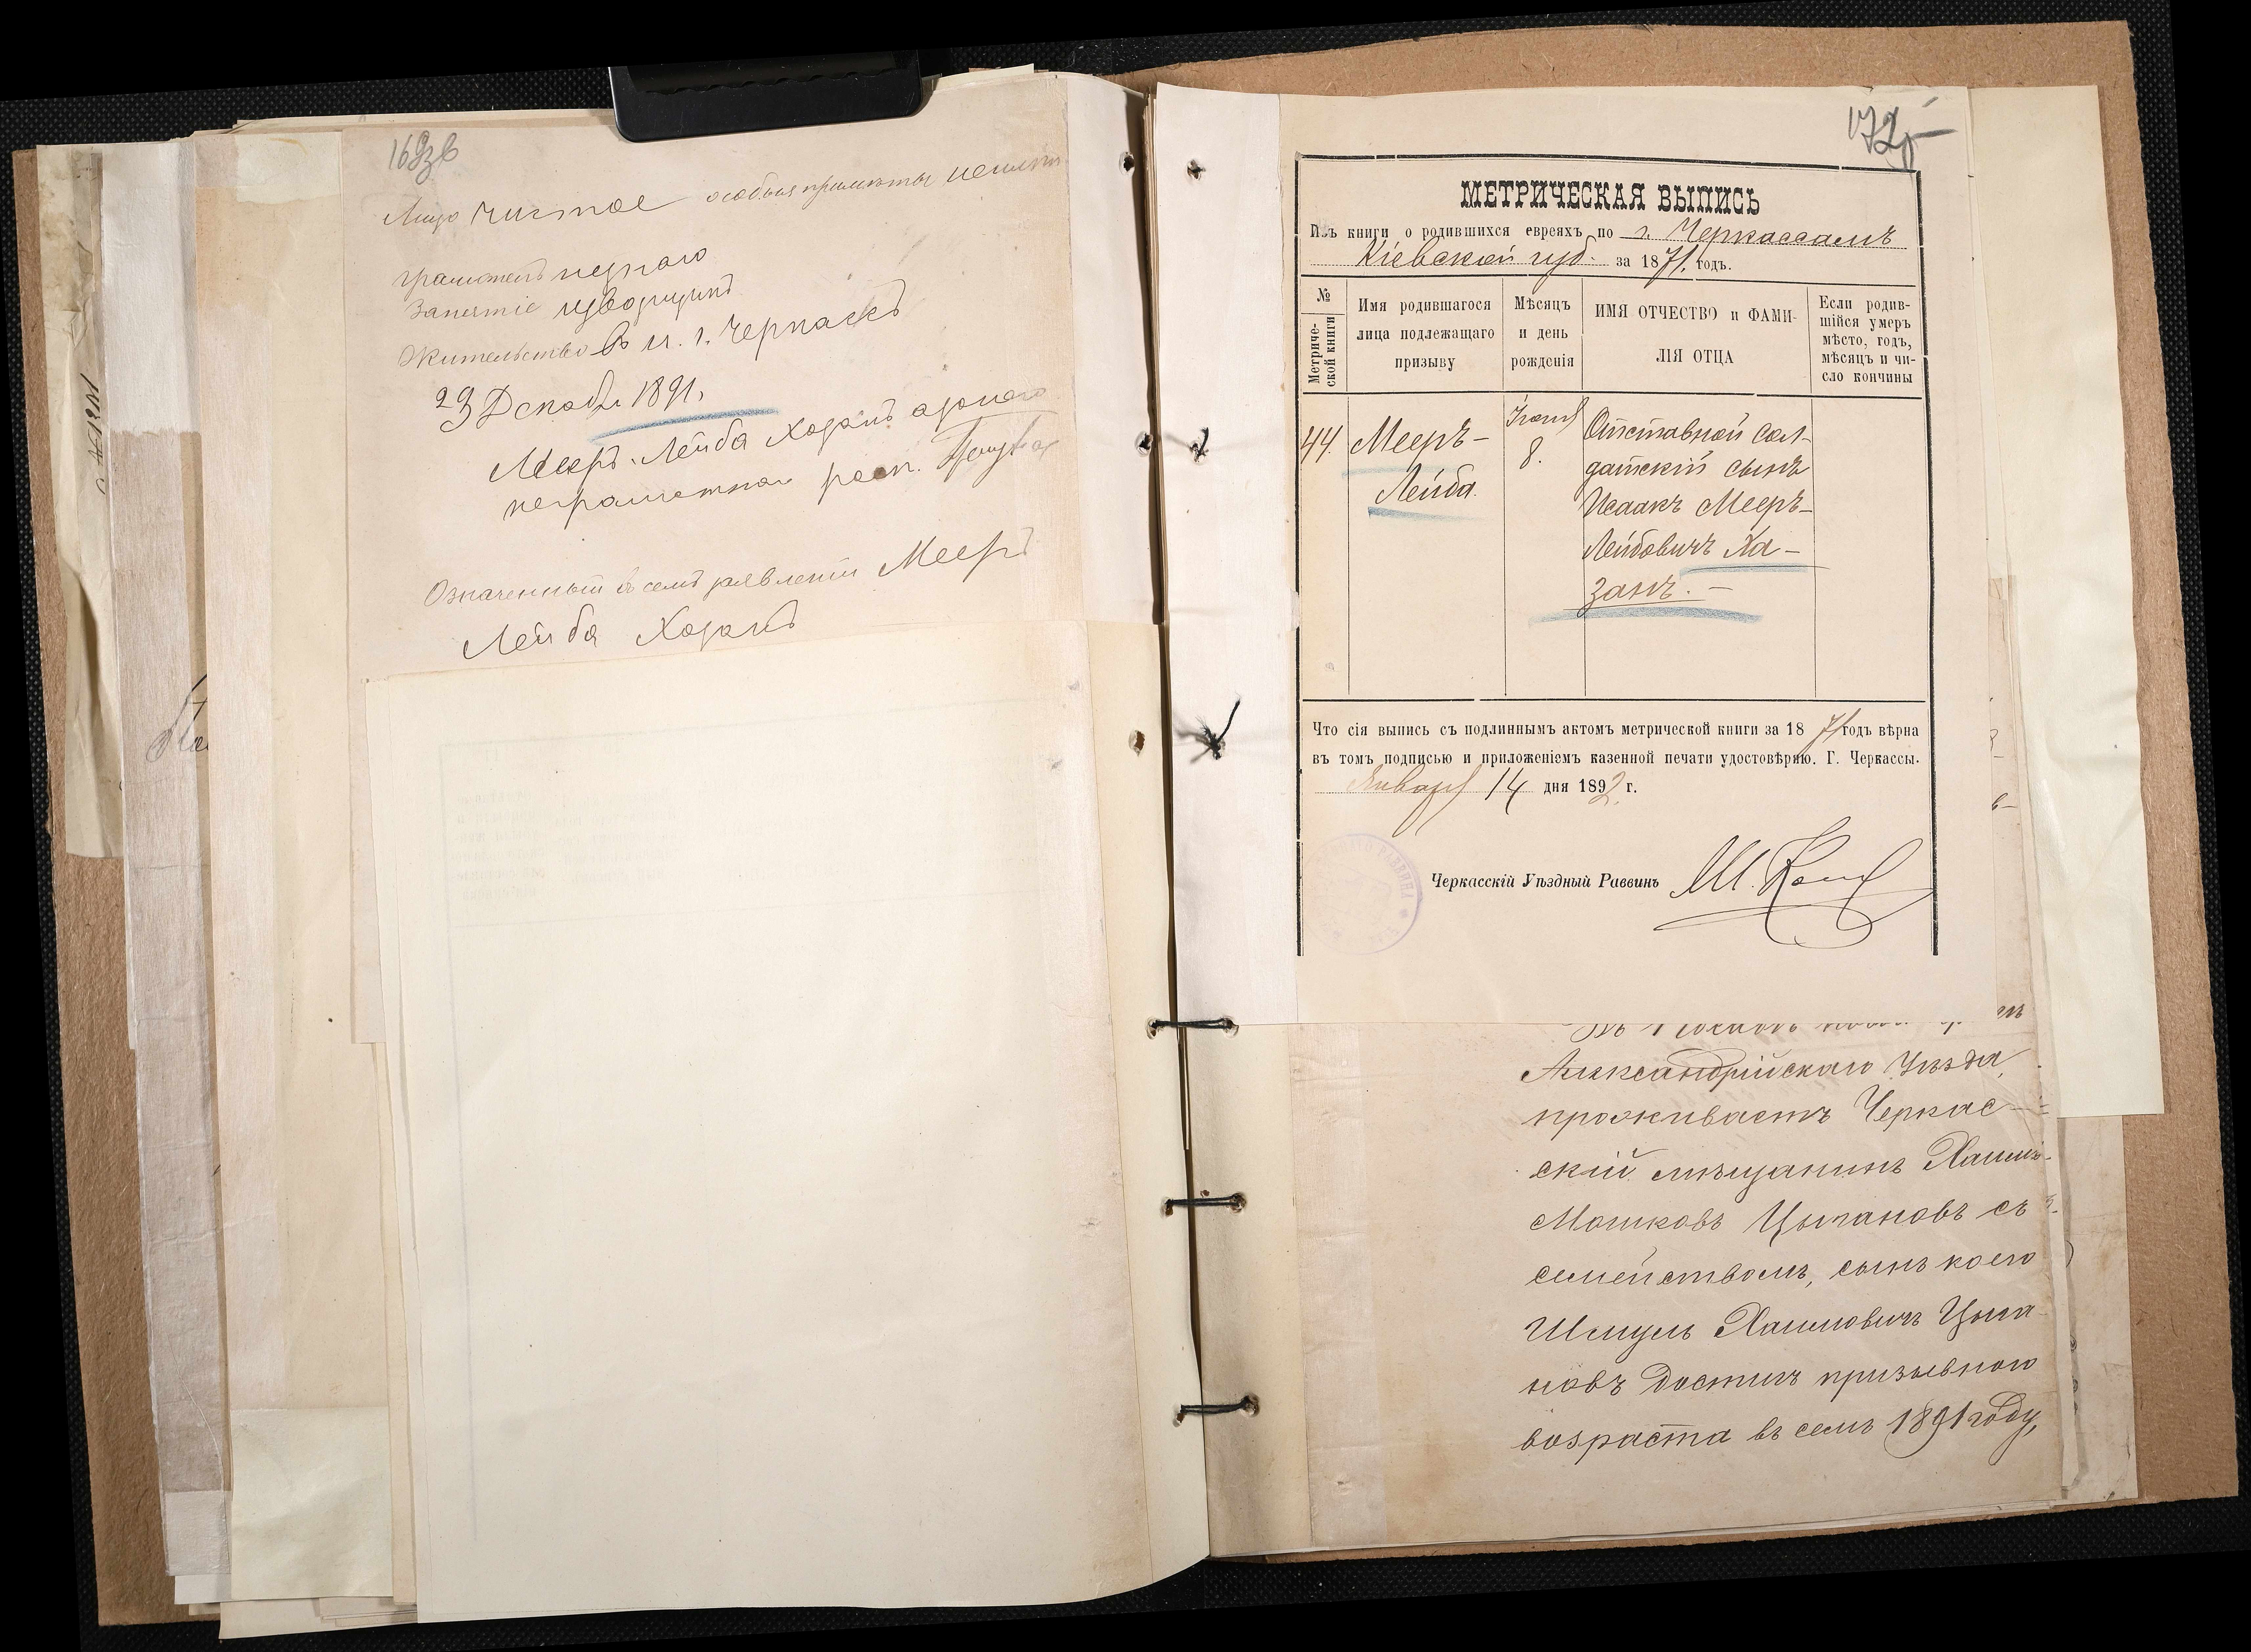 Лицо чистое особыя примѣты
Занятіе извозчикъ
Жительство въ м. г. Черкасъ
23 Декабря 1891,
Мееръ-Лейба Хозанъ
неграмотный росп.
Означенный въ семъ заявленіи Мееръ
Лейба Хозанъ
172
МЕТРИЧЕСКАЯ ВЫПИСЬ
Изъ книги о родившихся евреяхъ по г. Черкассамъ
Кіевской губ. за 1871. годъ.
№ Метриче-ской книги
Имя родившагося лица подлежащаго призыву
Мѣсяцъ и день рожденія
ИМЯ ОТЧЕСТВО и ФАМИ-ЛІЯ ОТЦА
Если родив-шійся умеръ мѣсто, годъ, мѣсяцъ и чи-сло кончины
44. Мееръ-
Лейба.
8.
Отставной сол-
датскій сынъ
Исаакъ Мееръ-
Лейбовичъ Ха-
занъ. -
Что сія выпись съ подлиннымъ актомъ метрической книги за 1871 годъ вѣрна
въ томъ подписью и приложеніемъ казенной печати удостовѣряю. Г. Черкассы.
Января 14 дня 1892 г.
Черкасскій Уѣздный Раввинъ
Александрійскаго Уѣзда,
проживаетъ Черкас-
скій мѣщанинъ Хаимъ-
Мошковъ Цыгановъ съ
семействомъ, сынъ коего
Шмуль Хаимовичъ Цыга-
новъ достигъ призывного
возраста въ семъ 1891 году,